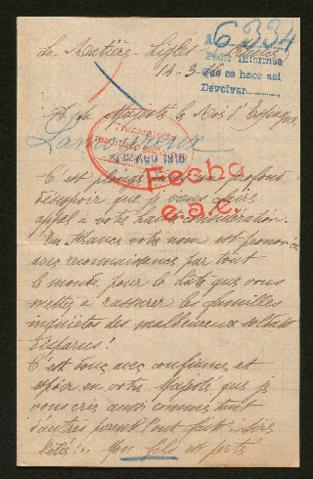 6334
Pedir informes
que se hace así
Devolver
La Matière - Sigles -
14-3-16
A Sa Majesté le Roi d'Espagne
Lamoureux
Fecha
e.a.c.
C'est plongé dans un profond
désespoir que je viens faire
appel à votre haute considération.
En France votre nom est prononcé
avec reconnaissance par tout
le monde, pour la hâte que vous
mettez à rassurer les familles
inquiètes des malheureux soldats
disparus!
C'est donc avec confiance et
espoir en votre Majesté que je
vous crie aussi comme tant
d'autres l'ont fait:
Pitié!.. Mon fils est porté